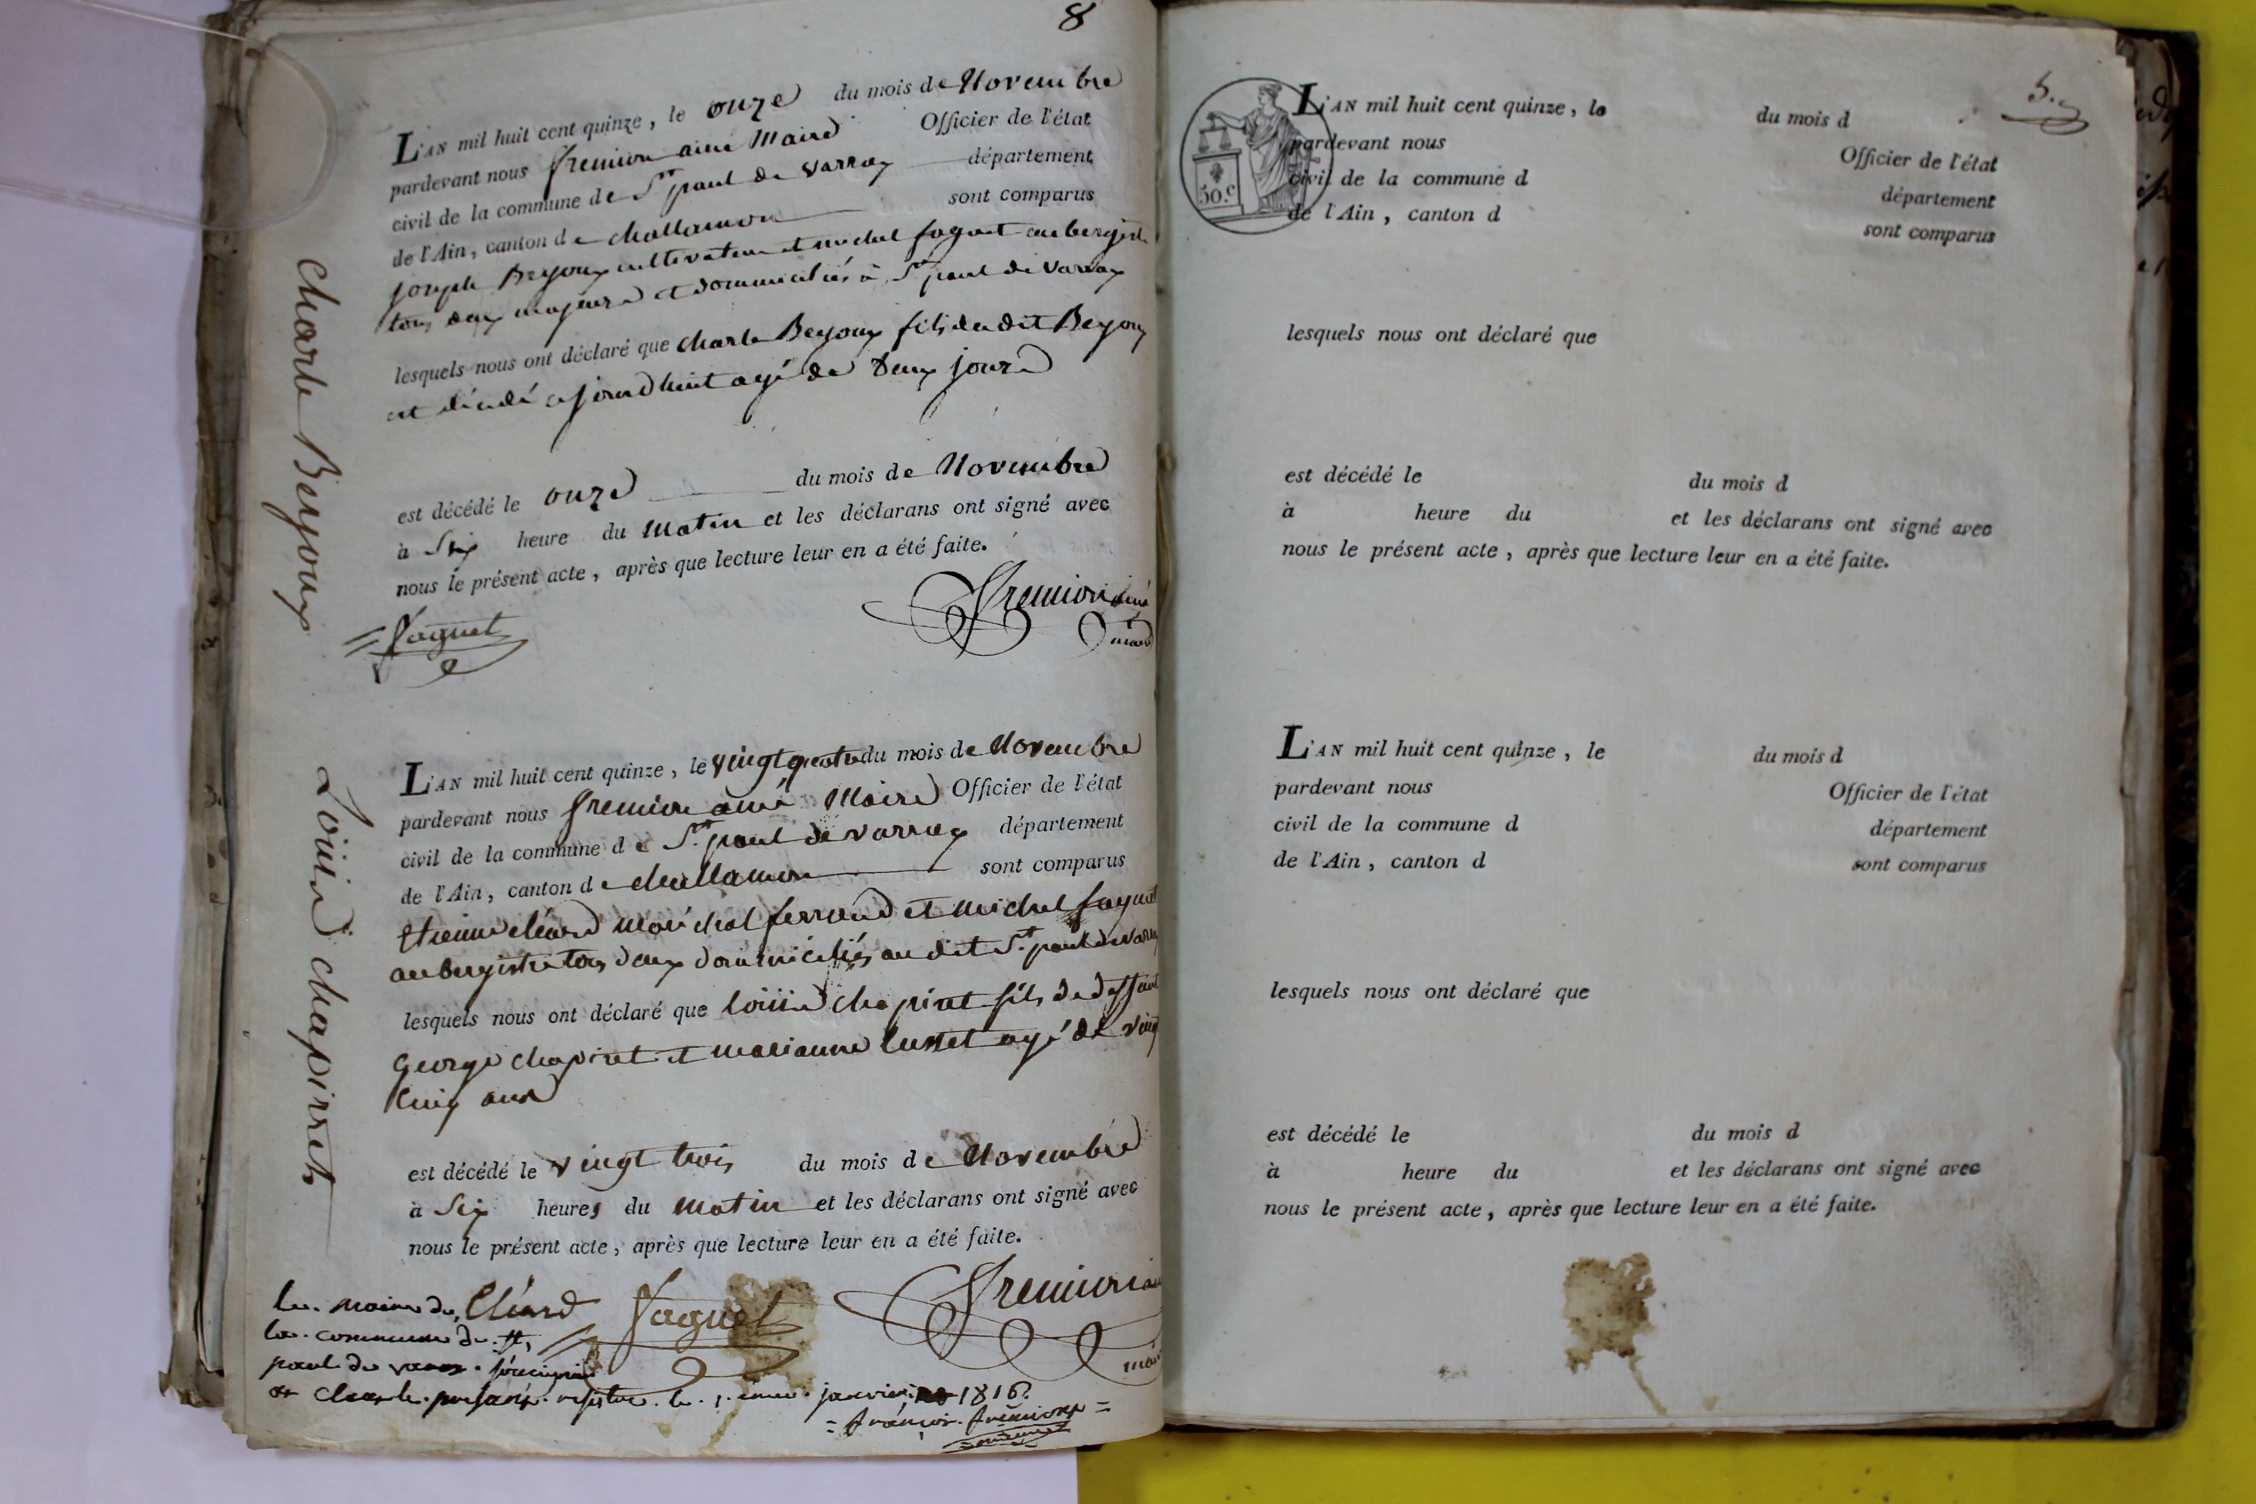 8
Charle Beyoux
L'AN mil huit cent quinze, le onze du mois de Novembre
pardevant nous fremion ainé Maire Officier de l'état
civil de la commune de St paul de varrax département
de l'Ain, canton de challamon sont comparus
joseph Beyoux cultivateur et michel faguet aubergiste
tous deux majeurs et domiciliés à St paul de varax
lesquels nous ont déclaré que charle Beyoux fils du dit Beyoux
est décédé ajourdhuit agé de deux jours
est décédé le onze du mois de Novembre
à Six heure du matin et les déclarans ont signé avec
nous le présent acte, après que lecture leur en a été faite.
fremion ainé
maire
faguet
Loüis chapiret
L'AN mil huit cent quinze, le vingt quatre du mois de Novembre
pardevant nous fremion ainé Maire Officier de l'état
civil de la commune de St paul de varrax département
de l'Ain, canton de challamon sont comparus
Etienne cléard maréchal ferrand et michel faguet
aubergiste tous deux domiciliés au dit St paul de varax
lesquels nous ont déclaré que loüis chapiret fils de deffunt
George chapiret et marianne agé de vingt
cinq ans
est décédé le vingt trois du mois de Novembre
à Six heures du matin et les déclarans ont signé avec
nous le présent acte, après que lecture leur en a été faite.
Cléard faguet fremion ainé
maire
le. maire de
la. commune de. st,
paul de varax.
et. présent. registre. le. 1. janvier 1816.
= françois. fremion =
5.
50.c
L'AN mil huit cent quinze, le du mois d
pardevant nous Officier de l'état
civil de la commune d département
de l'Ain, canton d sont comparus
lesquels nous ont déclaré que
est décédé le du mois d
à heure du et les déclarans ont signé avec
nous le présent acte, après que lecture leur en a été faite.
L'AN mil huit cent quinze, le du mois d
pardevant nous Officier de l'état
civil de la commune d département
de l'Ain, canton d sont comparus
lesquels nous ont déclaré que
est décédé le du mois d
à heure du et les déclarans ont signé avec
nous le présent acte, après que lecture leur en a été faite.